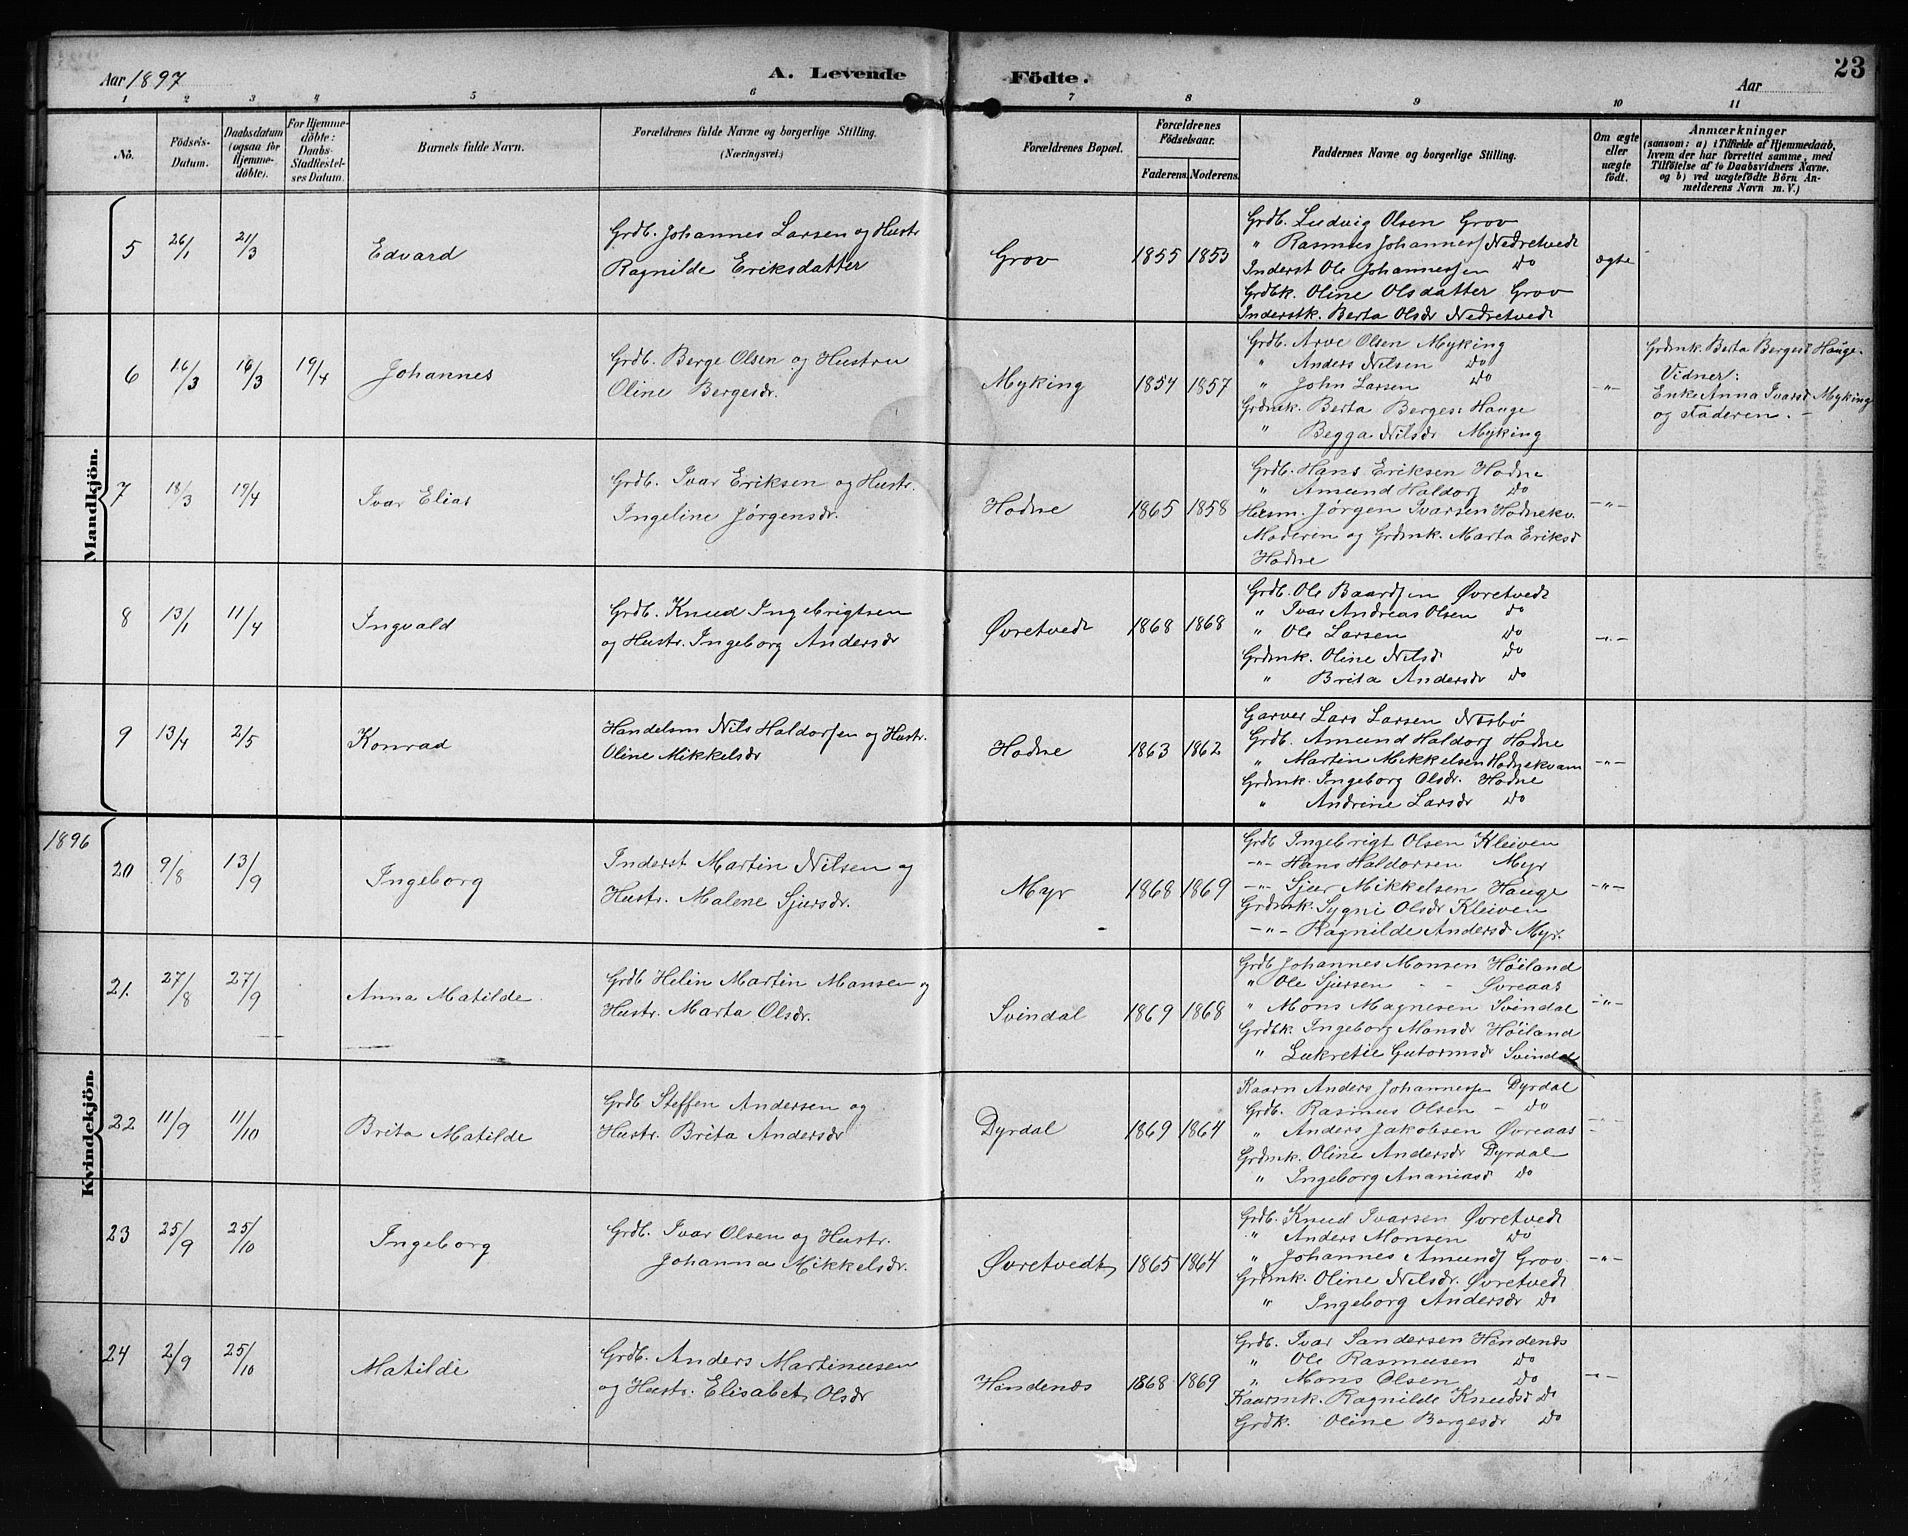 Aar 1897
A. Levende
Födte.
Aar
23
1 2 3 4 5 6 7 8 9 10 11
No.
Födsels-
Datum.
Daabsdatum
(ogsaa for
Hjemme-
döbte).
For Hjemme-
döbte:
Daabs-
Stadfæstel-
ses Datum.
Barnets fulde Navn.
Forældrenes fulde Navne og borgerlige Stilling.
(Næringsvei.)
Forældrenes Bopæl.
Forældrenes
Födselsaar.
Faderens. Moderens.
Faddernes Navne og borgerlige Stilling.
Om ægte
eller
uægte
födt.
Anmærkninger
(saasom: a) i Tilfælde af Hjemmedaab,
hvem der har forrettet samme, med
Tilföielse af to Daabsvidners Navne.
og b) ved uægtefödte Börn An-
melderens Navn m. V.)
Mandkjön.
5 26/1 21/3 Edvard
Grdb. Johannes Larsen og Hustr
Ragnilde Eriksdatter
Grov 1855 1853
Grdb. Ludvig Olsen Grov
" Rasmus Johannesf Nedretvedt
Inderst Ole Johannesfen Do
Grdbk. Oline Olsdatter Grov
Inderstk. Berta Olsdr Nedretvedt
ægte
6 16/3 16/3 19/4 Johannes
Grdb. Berge Olsen og Hustru
Oline Bergesdr.
Myking 1854 1857
Grdb. Arve Olsen Myking
" Anders Nilsen Do
" John Larsen Do
Grdmk. Berta Berges: Hauge
" Begga Nilsdr Myking
-"-
Grdmk. Berta Bergesd Hauge.
Vidner:
Enke Anna Ivarsd Myking
og Faderen. -
7 18/3 19/4 Ivar Elias
Grdb. Ivar Eriksen og Hustr.
Ingeline Jørgensdr.
Hodne 1865 1858
Grdb. Hans Eriksen Hodne
" Amund Haldorf Do
Husm. Jørgen Ivarsen Hodnekv.
Moderen og Grdmk. Marta Eriksd
Hodne
-"-
8 13/1 11/4 Ingvald
Grdb. Knud Ingebrigtsen
og Hustr. Ingeborg Andersdr
Øvretvedt 1868 1868
Grdb. Ole Baardfen Øvretvedt
" Ivar Andreas Olsen Do
" Ole Larsen Do
Grdmk. Oline Nilsd Do
" Brita Andersdr Do
-"-
9 13/4 2/5 Konrad
Handelsm Nils Haldorfen og Hustr.
Oline Mikkelsdr
Hodne 1863 1862
Garver Lars Larsen Nesbø
Grdb. Amund Haldorf Hodne
" Martin Mikkelsen Hodnekvam
Grdmk. Ingeborg Olsdr. Hodne
" Andrine Larsdr Do
-"-
1896
Kvindekjön.
20 9/8 13/9 Ingeborg
Inderst Martin Nilsen og
Hustr. Malene Sjursdr.
Myr 1868 1869
Grdb Ingebrigt Olsen Kleiven
-"- Hans Haldorsen Myr
-"- Sjur Mikkelsen Hauge
Grdmk. Sygni Olsdr Kleiven
-"- Ragnilde Andersd Myr.
-"-
21. 27/8 27/9 Anna Matilde
Grdb Helin Martin Mansen og
Hustr. Marta Olsdr.
Svindal 1869 1868
Grdb Johannes Monsen Høiland
" Ole Sjursen - - Øvreaas
" Mons Magnesen Svindal
Grdbk. Ingeborg Monsdr Høiland
" Lukretie Gutormsdr Svindal
-"-
22 11/9 11/10 Brita Matilde
Grdb Steffen Andersen og
Hustr. Brita Andersdr
Dyrdal 1869 1864
Kaarm Anders Johannesfen Dyrdal
Grdb. Rasmus Olsen - Do
" Anders Jakobsen Øvreaas
Grdmk. Oline Andersdr Dyrdal
" Ingeborg Ananiasd Do
-"-
23 25/9 25/10 Ingeborg
Grdb. Ivar Olsen og Hustr.
Johanna Mikkelsdr.
Øvretvedt 1865 1864
Grdb. Knud Ivarsen Øvretvedt
" Anders Monsen Do
" Johannes Amundf Grov
Grdmk. Oline Nilsdr. Øvretvedt
" Ingeborg Andersdr Do
-"-
24 2/9 25/10 Matilde
Grdb. Anders Martinusen
og Hustr. Elisabet Olsdr
Hindenes 1868 1869
Grdb. Ivar Sandersen Hindenes
" Ole Rasmusen Do
" Mons Olsen Do
Kaarmk. Ragnilde Knudsd Do
Grdk. Oline Bergesdr Do
-"-